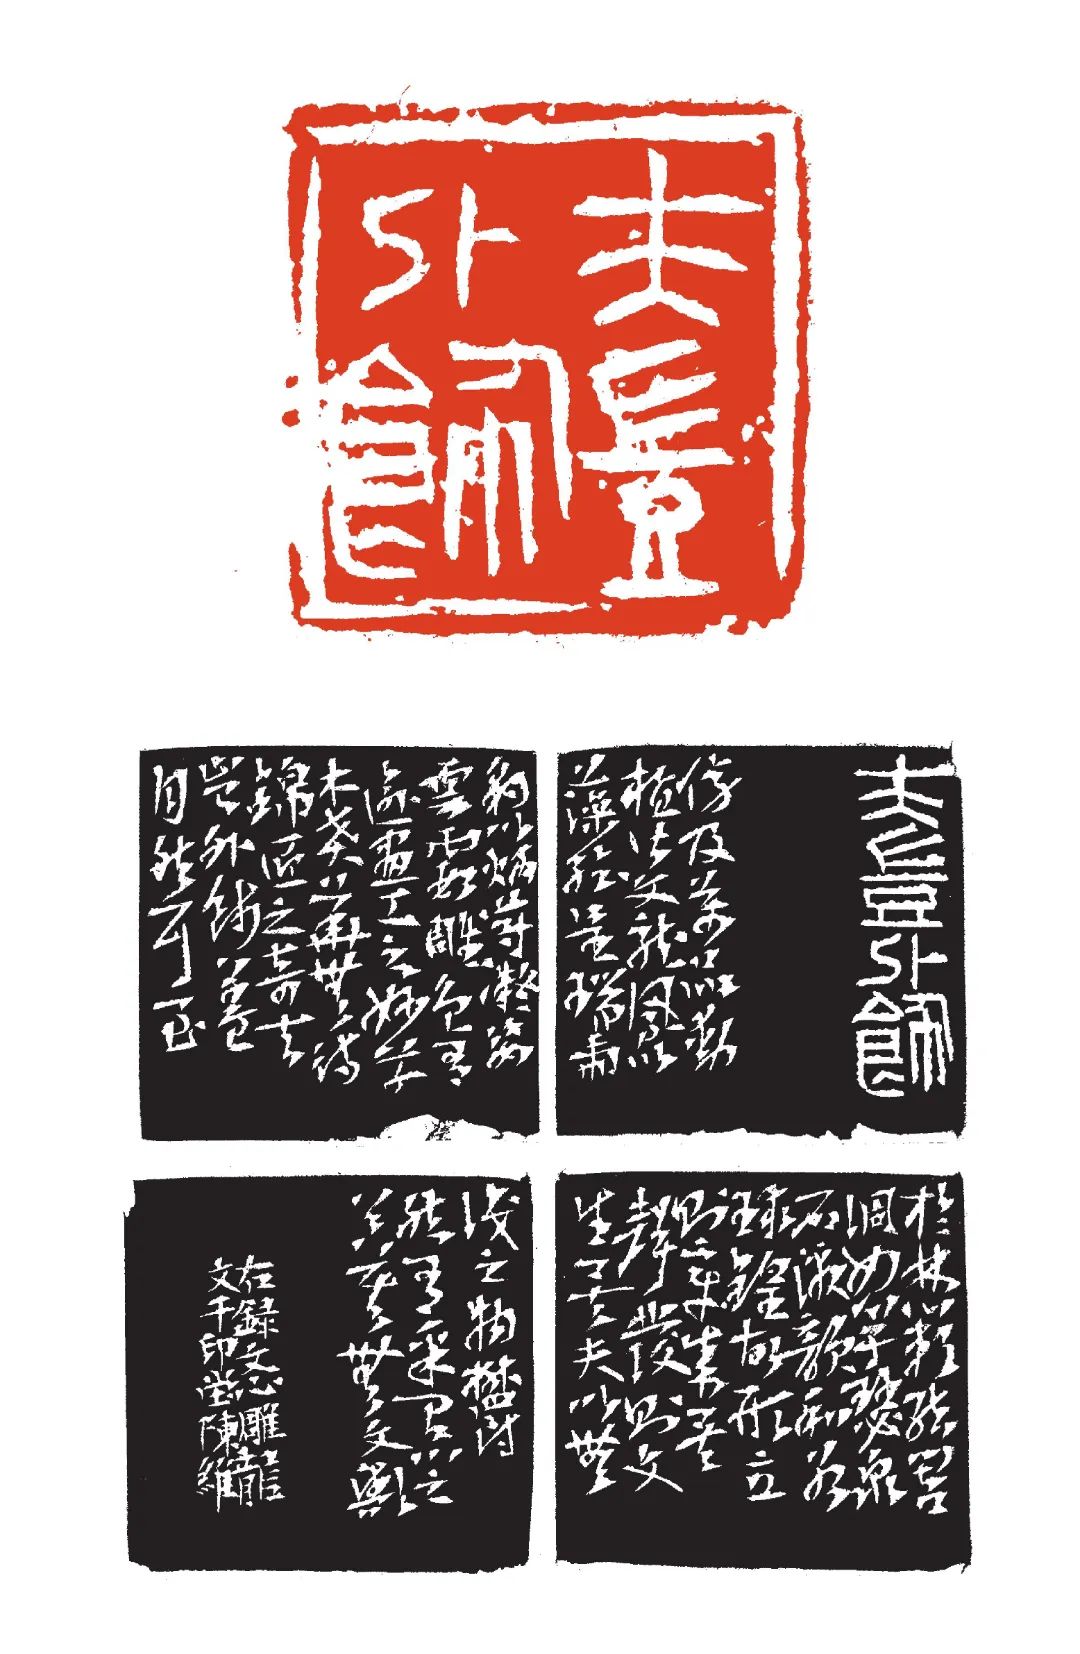 夫豈
外飾
夫豈外飾
傍及萬品動
植皆文龍鳳以
藻繪呈瑞虎
豹以炳蔚凝姿
雲霞雕色有
踰畫工之妙草
木賁華無待
錦匠之奇夫
豈外飾蓋
自然耳至
於林籟結響
調如竽瑟泉
石激韻和若
球鍠故形立
則章成矣
聲發則文
生矣夫以無
識之物鬱
然有采有心之
器其無文歟
右錄文心雕龍
文千印堂陳維